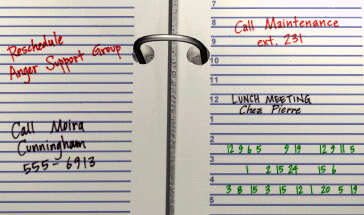 Reschedule
Anger Support Group
Call Moira
Cunningham
555-6913
7
8
Call Maintenance
ext. 231
9
10
11
12 LUNCH MEETING
Chez Pierre
1
2
12 9 6 5 9 19 12 9 11 5
3
1 2 15 24 15 6
4
3 8 15 3 15 12 1 20 5 19
5